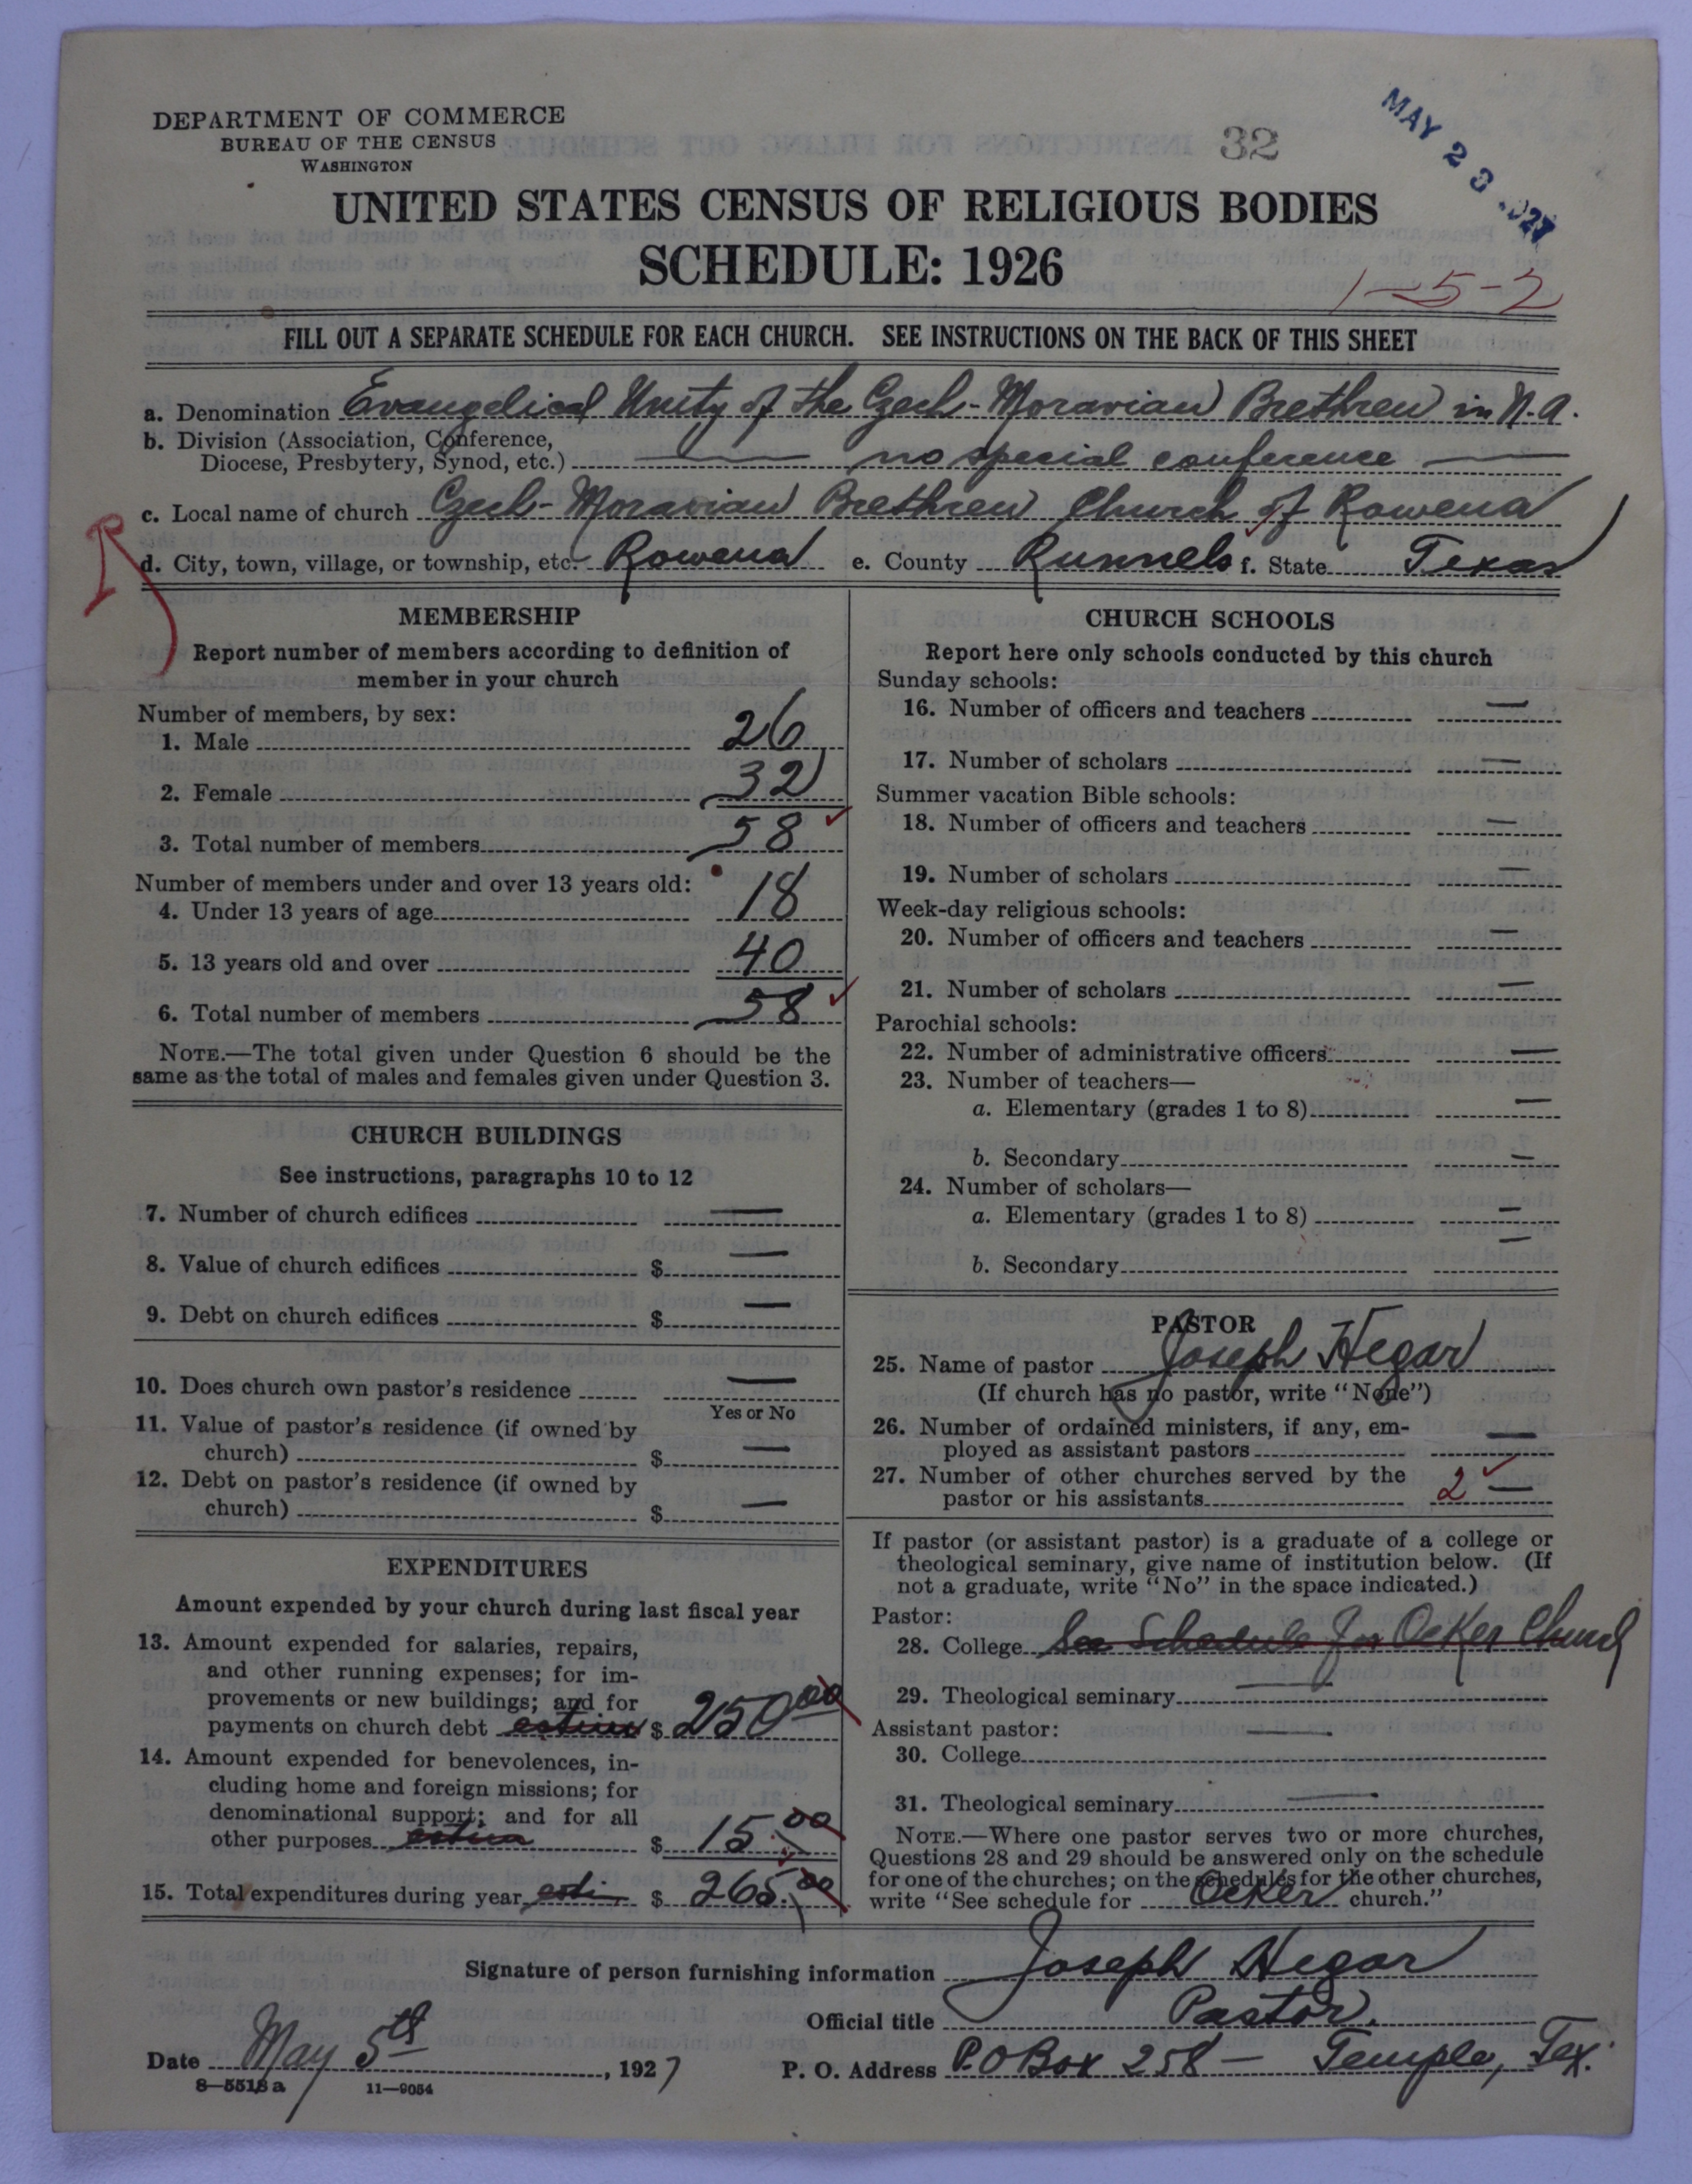 DEPARTMENT OF COMMERCE
BUREAU OF THE CENSUS
WASHINGTON
32
MAY 23 1927
UNITED STATES CENSUS OF RELIGIOUS BODIES
SCHEDULE: 1926
1-5-2
FILL OUT A SEPARATE SCHEDULE FOR EACH CHURCH. SEE INSTRUCTIONS ON THE BACK OF THIS SHEET
a. Denomination Evangelical Unity of the Czech-Moravian Brethren in N.A.
b. Division (Association, Conference,
Diocese, Presbytery, Synod, etc.) — no special conference —
c. Local name of church Czech-Moravian Brethren Church of Rowena
d. City, town, village, or township, etc. Rowena e. County Runnels f. State Texas
MEMBERSHIP
Report number of members according to definition of
member in your church
Number of members, by sex:
1. Male 26
2. Female 32
3. Total number of members 58
Number of members under and over 13 years old:
4. Under 13 years of age 18
5. 13 years old and over 40
6. Total number of members 58
NOTE.—The total given under Question 6 should be the
same as the total of males and females given under Question 3.
CHURCH BUILDINGS
See instructions, paragraphs 10 to 12
7. Number of church edifices —
8. Value of church edifices $ —
9. Debt on church edifices $ —
10. Does church own pastor's residence —
Yes or No
11. Value of pastor's residence (if owned by
church) $ —
12. Debt on pastor's residence (if owned by
church) $ —
EXPENDITURES
Amount expended by your church during last fiscal year
13. Amount expended for salaries, repairs,
and other running expenses; for im-
provements or new buildings; and for
payments on church debt $ 250.00
14. Amount expended for benevolences, in-
cluding home and foreign missions; for
denominational support; and for all
other purposes $ 15.00
15. Total expenditures during year $ 265.00
CHURCH SCHOOLS
Report here only schools conducted by this church
Sunday schools:
16. Number of officers and teachers —
17. Number of scholars —
Summer vacation Bible schools:
18. Number of officers and teachers —
19. Number of scholars —
Week-day religious schools:
20. Number of officers and teachers —
21. Number of scholars —
Parochial schools:
22. Number of administrative officers —
23. Number of teachers—
a. Elementary (grades 1 to 8) —
b. Secondary —
24. Number of scholars—
a. Elementary (grades 1 to 8) —
b. Secondary —
PASTOR
25. Name of pastor Joseph Hegar
(If church has no pastor, write "None")
26. Number of ordained ministers, if any, em-
ployed as assistant pastors —
27. Number of other churches served by the
pastor or his assistants 2 —
If pastor (or assistant pastor) is a graduate of a college or
theological seminary, give name of institution below. (If
not a graduate, write "No" in the space indicated.)
Pastor:
28. College See Schedule for Ocker Church
29. Theological seminary —
Assistant pastor:
30. College —
31. Theological seminary —
NOTE.—Where one pastor serves two or more churches,
Questions 28 and 29 should be answered only on the schedule
for one of the churches; on the schedules for the other churches,
write "See schedule for Ocker church."
Signature of person furnishing information Joseph Hegar
Official title Pastor.
Date May 5th, 1927 P. O. Address P.O Box 258 — Temple, Tex.
8—5518 a 11—9054